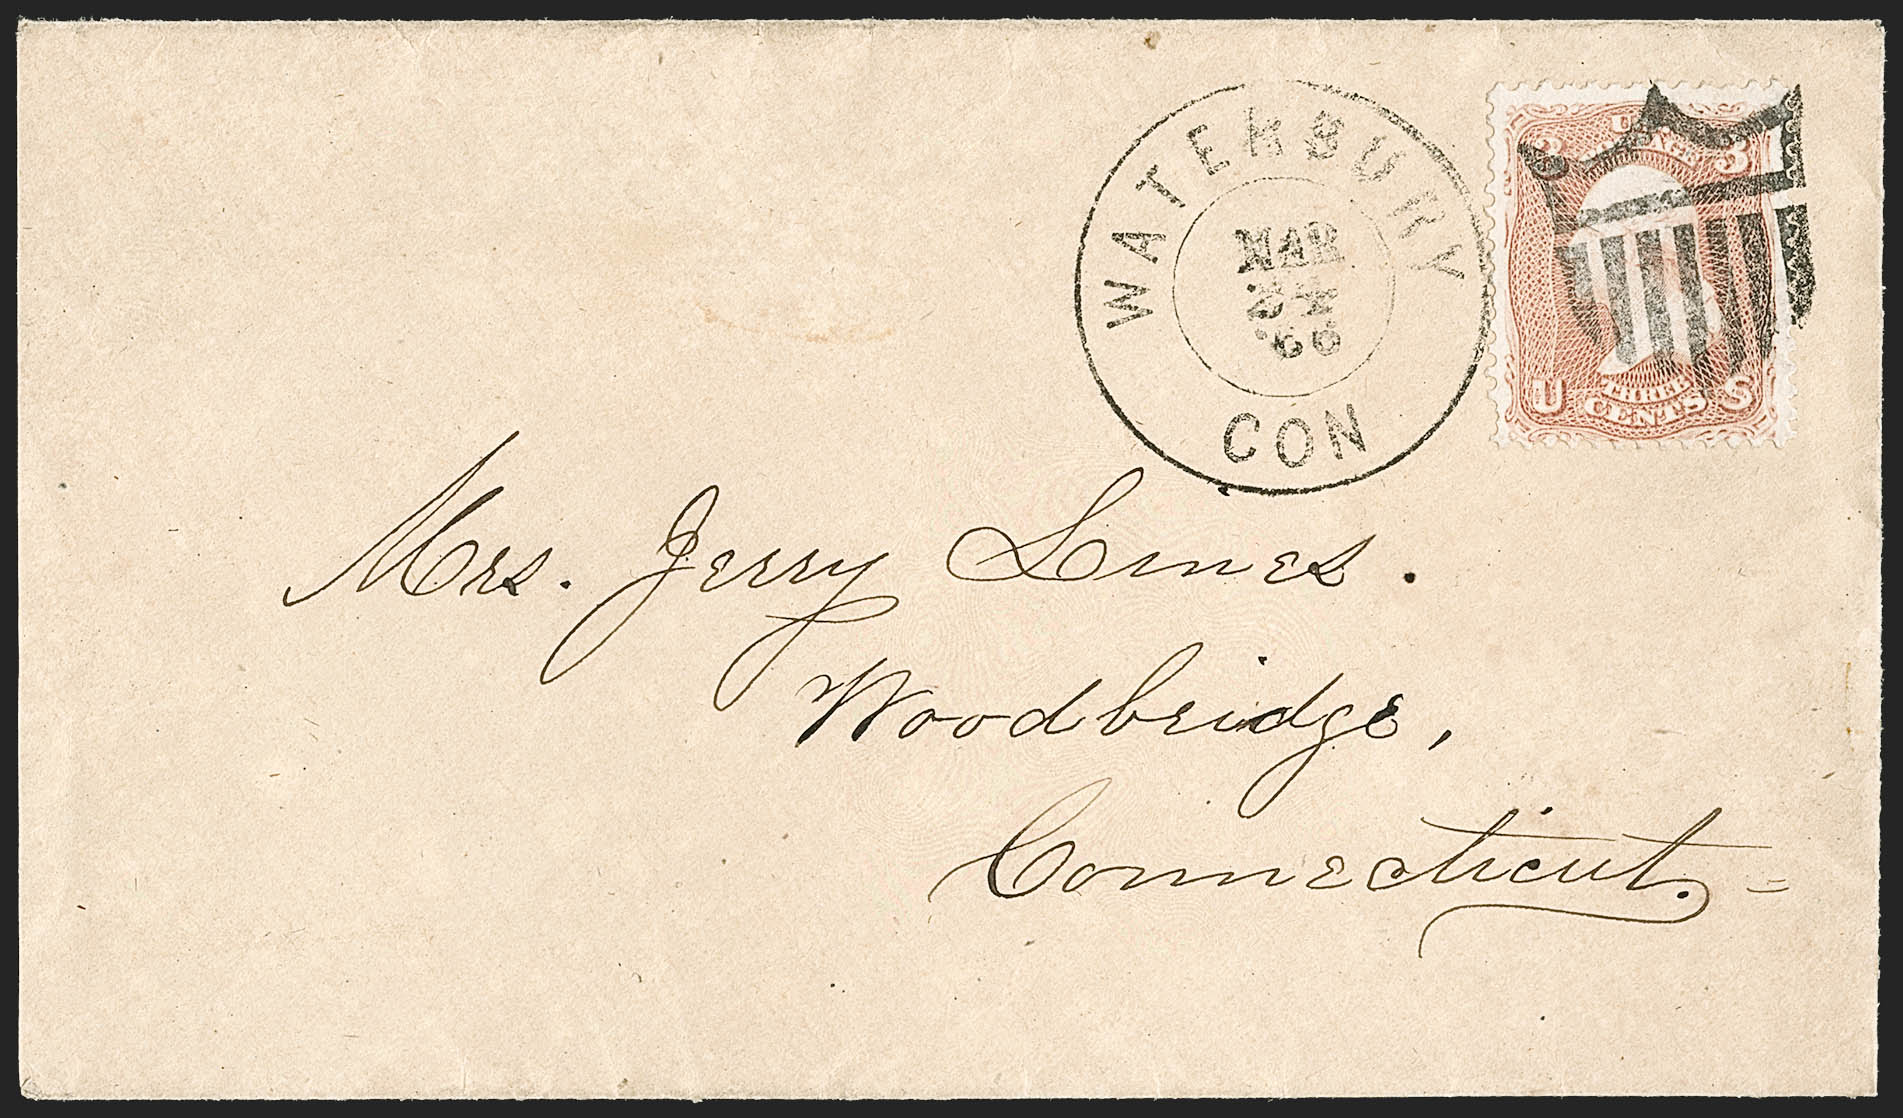 WATERBURY
MAR
CON
U.S.
POSTAGE
3 3
U THREE S
CENTS
Mrs. Jerry Lines.
Woodbridge,
Connecticut.